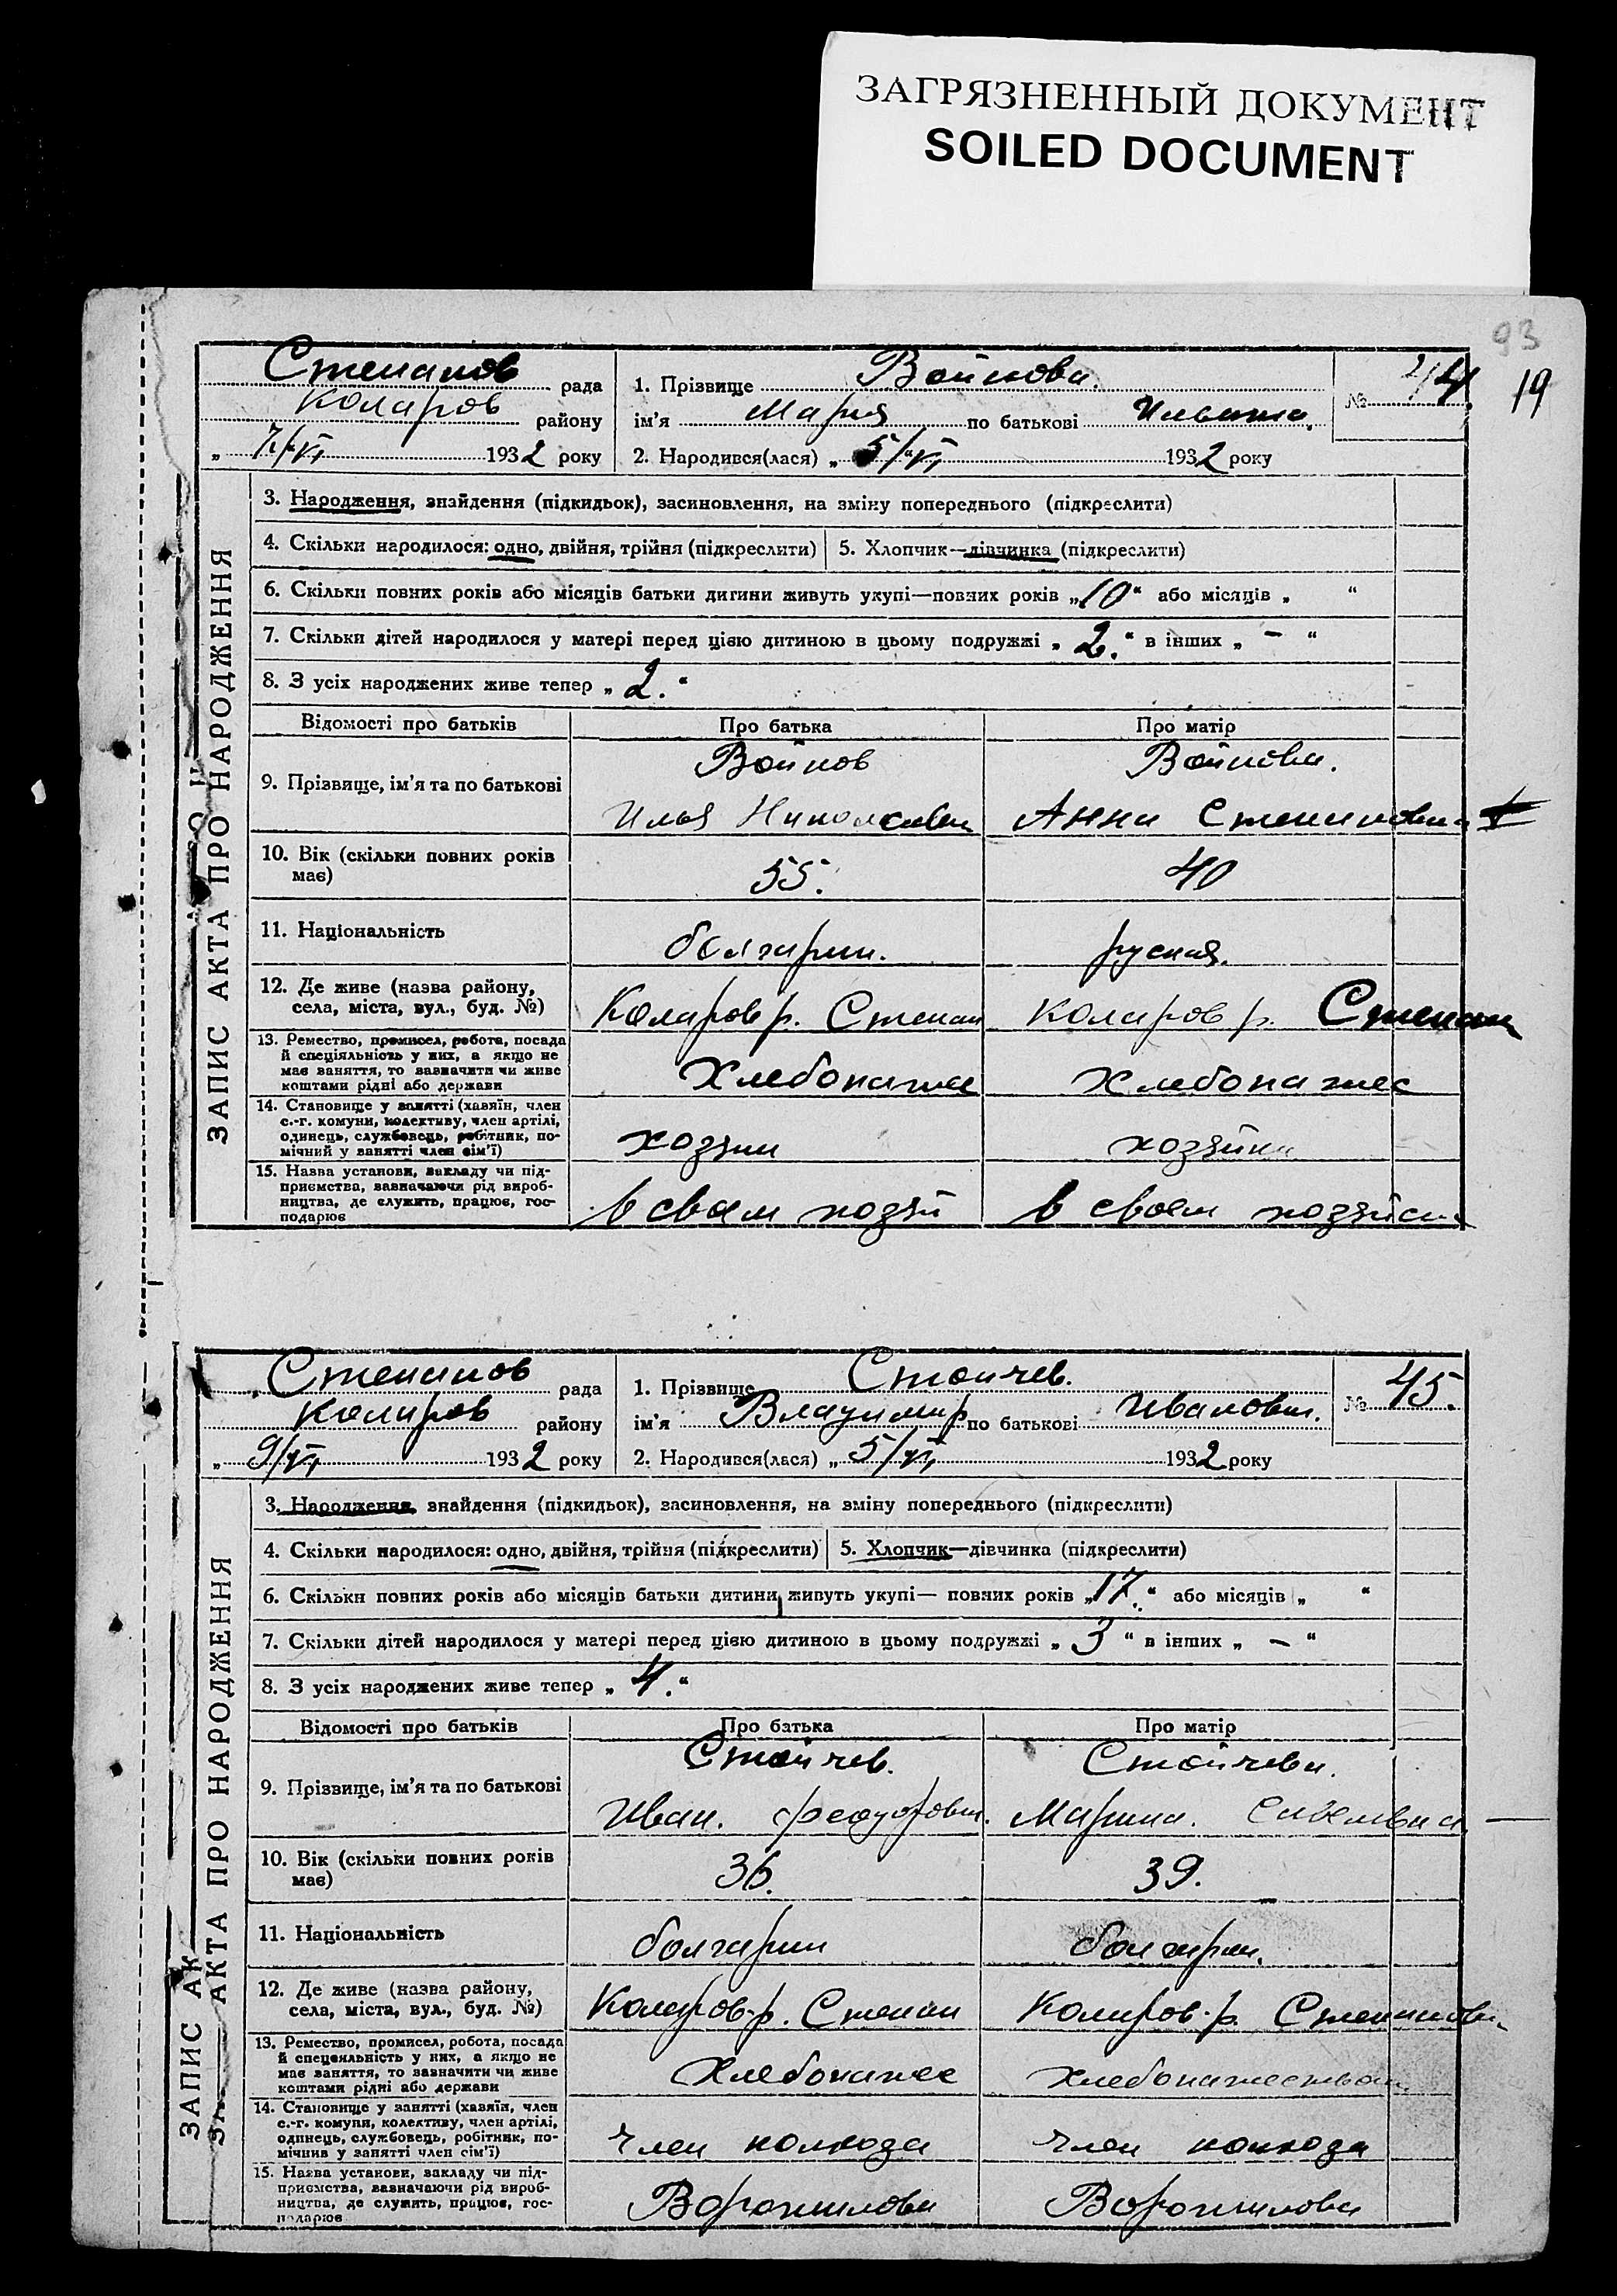 ЗАГРЯЗНЕННЫЙ ДОКУМЕНТ
SOILED DOCUMENT
93
19
Степанов рада
Коларов району
„ 7/VI 1932 року
1. Прізвище Войнова.
ім'я Мария по батькові
2. Народився(лася) „ 5/VI 1932 року
№ 44.
ЗАПИС АКТА ПРО НАРОДЖЕННЯ
3. Народження, знайдення (підкидьок), засиновлення, на зміну попереднього (підкреслити)
4. Скільки народилося: одно, двійня, трійня (підкреслити)
5. Хлопчик—дівчинка (підкреслити)
6. Скільки повних років або місяців батьки дитини живуть укупі—повних років „10“ або місяців „ “
7. Скільки дітей народилося у матері перед цією дитиною в цьому подружжі „ 2. “ в інших „ – “
8. З усіх народжених живе тепер „ 2. “
Відомості про батьків Про батька Про матір
9. Прізвище, ім'я та по батькові
Войнов Войнова.
Илья Николаевич Анна Степановна
10. Вік (скільки повних років
має)
55. 40
11. Національність
болгарин. руская.
12. Де живе (назва району,
села, міста, вул., буд. №)
Коларов р. Степан Коларов р. Степан
13. Ремество, промисел, робота, посада
й спеціяльність у них, а якщо не
має заняття, то зазначити чи живе
коштами рідні або держави
Хлебопашес Хлебопашес
14. Становище у занятті (хазяїн, член
с.-г. комуни, колективу, член артілі,
одинець, службовець, робітник, по-
мічний у занятті член сім'ї)
хозяин хозяйка
15. Назва установи, закладу чи під-
приємства, зазначаючи рід вироб-
ництва, де служить, працює, гос-
подарює
в своем хозяй в своем хозяйст
Степанов рада
Коларов району
„ 9/VI 1932 року
1. Прізвище Стойчев.
ім'я Владимир по батькові Иванович.
2. Народився(лася) „ 5/VI 1932 року
№ 45.
ЗАПИС АК
ЗАПИС АКТА ПРО НАРОДЖЕННЯ
3. Народження, знайдення (підкидьок), засиновлення, на зміну попереднього (підкреслити)
4. Скільки народилося: одно, двійня, трійня (підкреслити)
5. Хлопчик—дівчинка (підкреслити)
6. Скільки повних років або місяців батьки дитини живуть укупі— повних років „17.“ або місяців „ “
7. Скільки дітей народилося у матері перед цією дитиною в цьому подружжі „ 3 “ в інших „ – “
8. З усіх народжених живе тепер „ 4. “
Відомості про батьків Про батька Про матір
9. Прізвище, ім'я та по батькові
Стойчев. Стойчева.
Иван. Феодорович. Марина.
10. Вік (скільки повних років
має)
36. 39.
11. Національність
болгарин болгарк.
12. Де живе (назва району,
села, міста, вул., буд. №)
Коларов-р. Степан Коларов-р. Степановк
13. Ремество, промисел, робота, посада
й спеціяльність у них, а якщо не
має заняття, то зазначити чи живе
коштами рідні або держави
Хлебопашес Хлебопашеством
14. Становище у занятті (хазяїн, член
с.-г. комуни, колективу, член артілі,
одинець, службовець, робітник, по-
мічник у занятті член сім'ї)
Член колхоза Член колхоза
15. Назва установи, закладу чи під-
приємства, зазначаючи рід вироб-
ництва, де служить, працює, гос-
подарює
Ворошилова Ворошилова